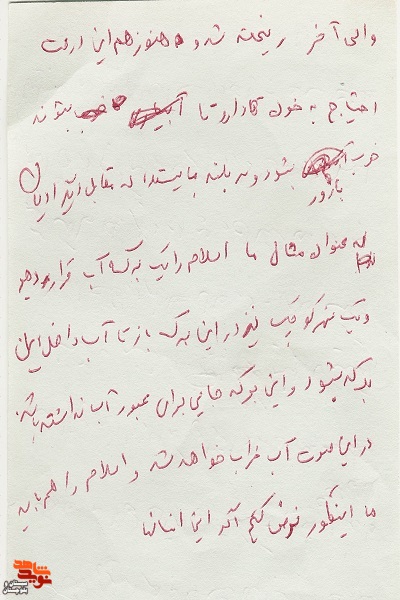 والی آخر ریخته شد و هنوز هم این
احتیاج به خون دارد تا بتواند
خوب بشود و به بایستد که مقابل
بازور
به عنوان مثال ما اسلام را یک برکه آب قرار دهیم
و یک نهر کوچک نیز در این برکه باز تا آب داخل این
برکه بشود و این برکه جایی برای عبور آب نداشته باشد
در این صورت آب خراب خواهد شد و اسلام را هم باید
ما اینطور فرض کنیم اگر این انسانها
شاهد
نوید
سیستان و
بلوچستان